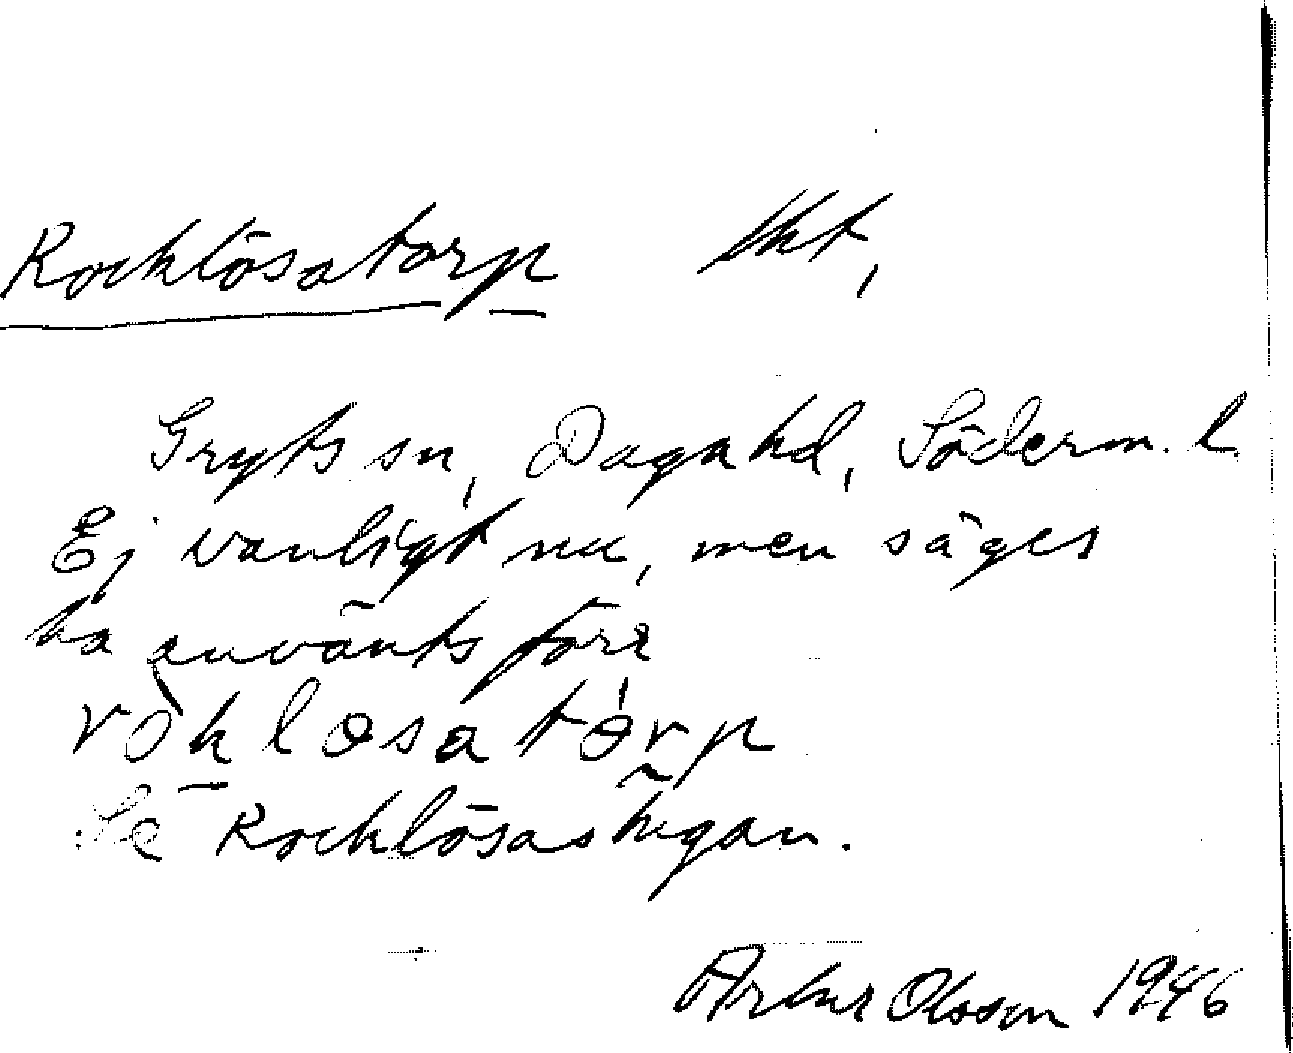 Rocklösatorp lht,
Gryts sn, Daga hd, Söderm. l.
Ej vanligt nu, men säges
ha använts förr
ròk løsa tórp
Se Rocklösastugan.
Artur Olsson 1946